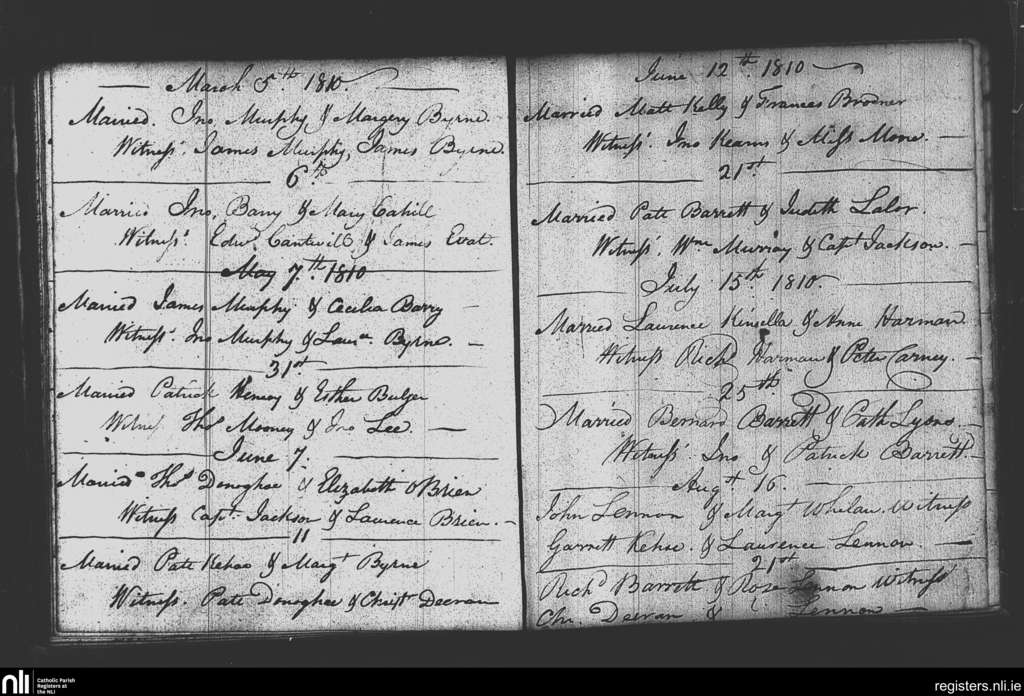 March 5th 1810.
Married. Jno. Murphy & Margery Byrne.
Witness. James Murphy, James Byrne.
6th
Married Jno. Barry & Mary Cahill
Witness. Edwd. Cantwill & James Evat.
May 7th. 1810
Married James Murphy & Cecilia Barry
Witness. Jno Murphy & Laurce Byrne.
31st
Married Patrick & Esther Bulger
Witness Thos Mooney & Jno Lee.
June 7.
Married Thos Donoghoe & Elizabeth OBrien
Witness Capt. Jackson & Laurence Brien.
11
Married Patt Kehoe & Margt Byrne
Witness. Patt Donoghoe & Christr Deeran
June 12th 1810
Married Matt Kelly & Frances Brodner
Witness. Jno Kearns & Miss More.
21st
Married Patt Barrett & Judith Lalor.
Witness. Wm Murray & Capt Jackson.
July 15th 1810.
Married Laurence Kinsella & Anne Harman
Witness Richd Harman & Peter Carney.
25th
Married Bernard Barrett & Cath Lyons
Witness. Jno & Patrick Barrett
Augt 16.
John Lennon & Margt Whelan. Witness
Garrett Kehoe. & Laurence Lennon
21st
Richd Barrett & Rose Lennon Witness
Chr. Deeran & Lennon
nli
Catholic Parish
Registers at
the NLI
registers.nli.ie